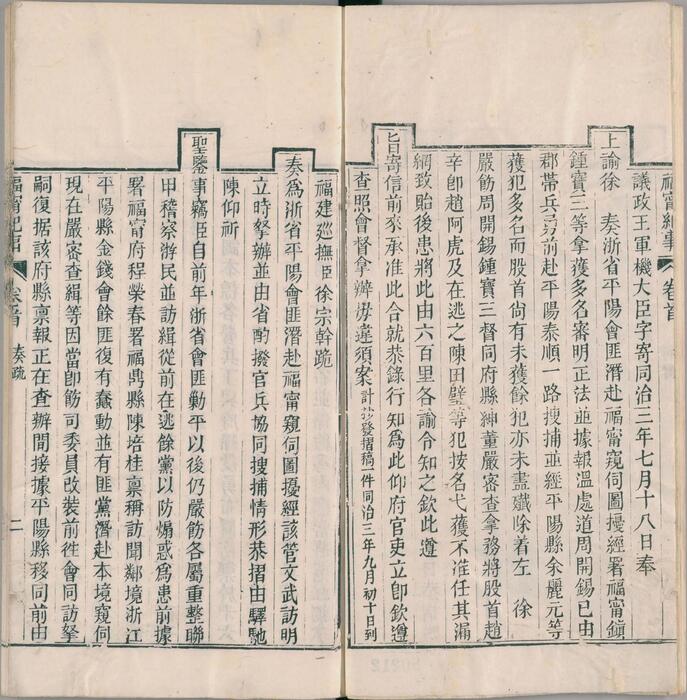 福甯紀事 卷首
議政王軍機大臣字寄同治三年七月十八日奉
上諭徐 奏浙省平陽會匪潛赴福甯窺伺圖擾經署福甯鎭
鍾寶三等拿獲多名審明正法並據報溫處道周開錫已由
郡帶兵勇前赴平陽泰順一路搜捕並經平陽縣余麗元等
獲犯多名而股首尚有未獲餘犯亦未盡殲除着左 徐
嚴飭周開錫鍾寶三督同府縣紳董嚴密查拿務將股首趙
辛卽趙阿虎及在逃之陳田璧等犯按名弋獲不准任其漏
網致貽後患將此由六百里各諭令知之欽此遵
旨寄信前來承准此合就恭錄行知爲此仰府官吏立卽欽遵
查照會督拿辦毋違須案計抄發摺稿一件同治三年九月初十日到
福建廵撫臣徐宗幹跪
奏爲浙省平陽會匪潛赴福甯窺伺圖擾經該管文武訪明
立時拏辦並由省酌撥官兵協同搜捕情形恭摺由驛馳
陳仰祈
聖鑒事竊臣自前年浙省會匪勦平以後仍嚴飭各屬重整聯
甲稽察游民並訪緝從前在逃餘黨以防煽惑爲患前據
署福甯府程榮春署福鼎縣陳培桂稟稱訪聞鄰境浙江
平陽縣金錢會餘匪復有蠢動並有匪黨潛赴本境窺伺
現在嚴密查緝等因當卽飭司委員改裝前往會同訪拏
嗣復據該府縣稟報正在查辦間接據平陽縣移同前由
福甯紀事 卷首 奏疏 二